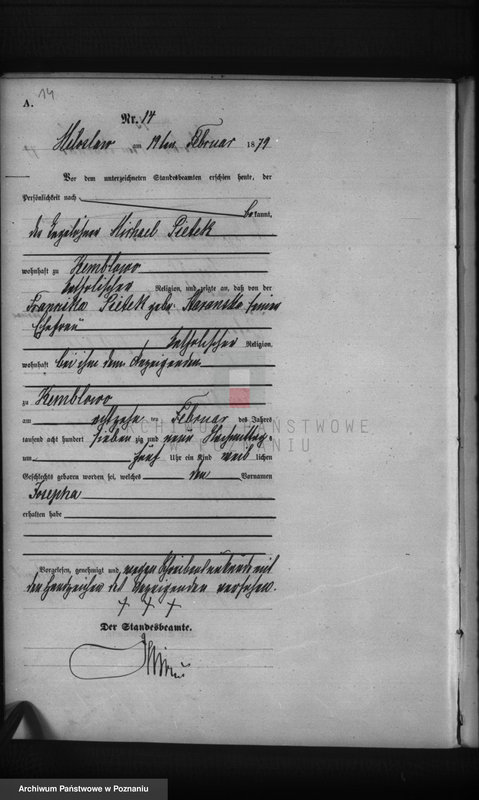 A. 14
Nr. 14
Miloslaw am 19ten Februar 1879
Vor dem unterzeichneten Standesbeamten erschien heute, der
Persönlichkeit nach
bekannt,
der Michael Pietek
wohnhaft zu Kemblowo
katholischer Religion, und zeigte an, daß von der
Franziska Pietek geb. seiner
Ehefrau
katholischer Religion,
wohnhaft bei ihm dem Anzeigenden
zu Kemblowo
am achtzehn ten Februar des Jahres
tausend acht hundert sieben zig und neun Nachmittag
um fünf Uhr ein Kind weib lichen
Geschlechts geboren worden sei, welches den Vornamen
Josepha
erhalten habe
Vorgelesen, genehmigt und wegen Schreibensunkunde mit
den Handzeichen des Anzeigenden versehen.
+ + +
Der Standesbeamte.
ARCHIWUM PAŃSTWOWE
W POZNANIU
Archiwum Państwowe w Poznaniu